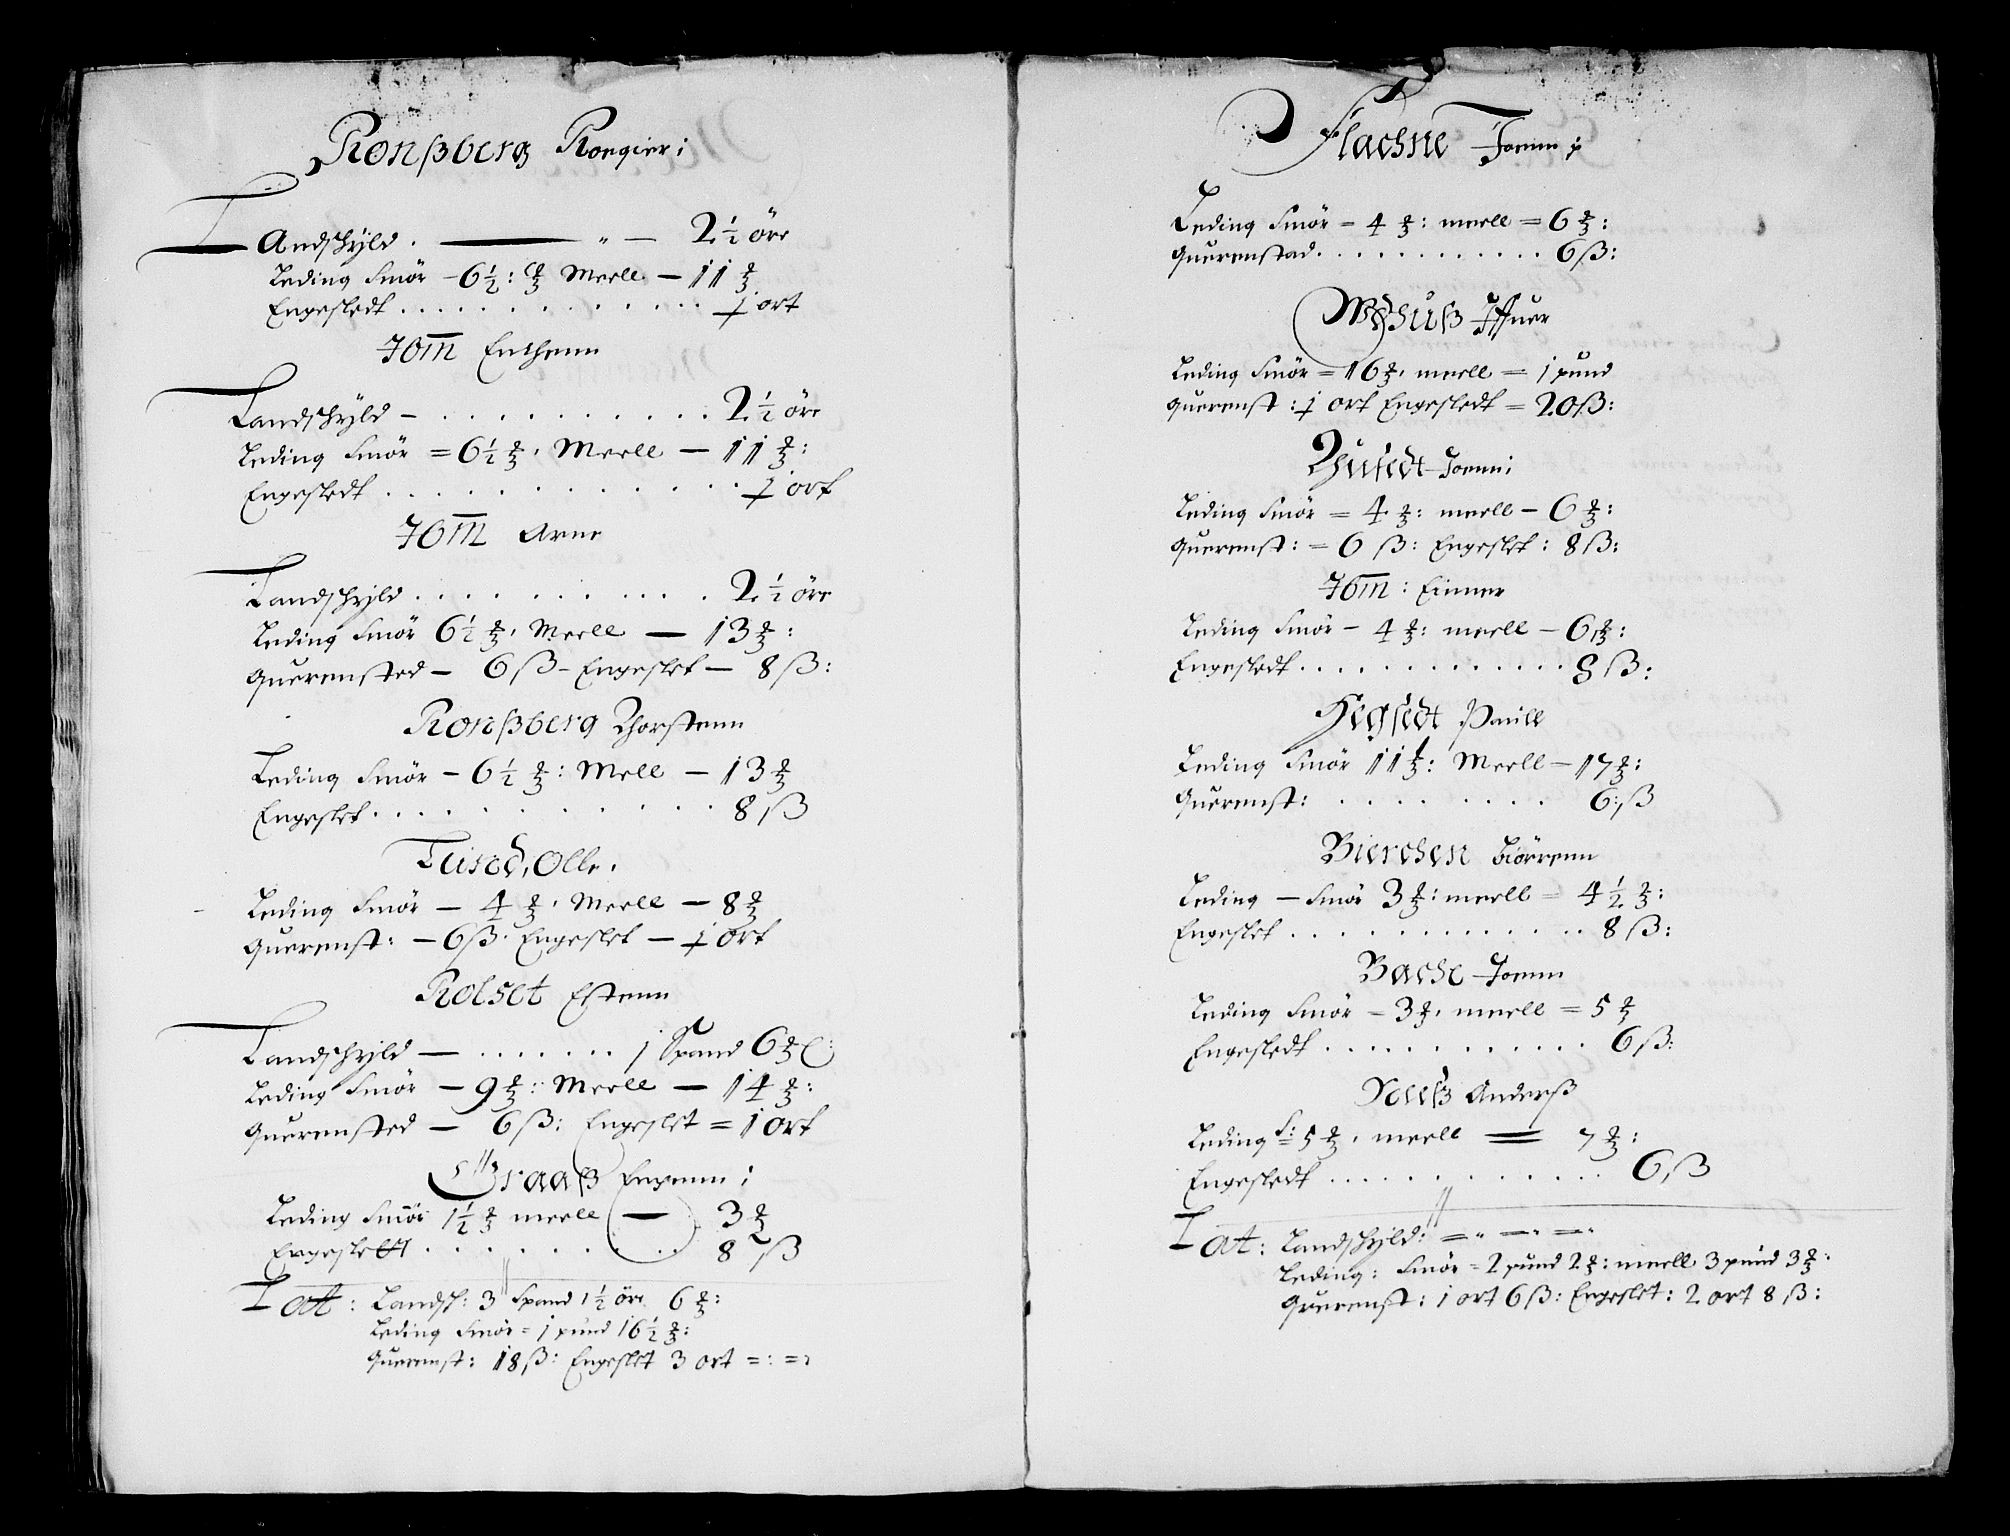 Ronßberg Roegier;
Landschyld . — " — 2½ öre
Leding Smör – 6½ : ℔ Meell – 11 ℔
Engesledt . . . . . . . . . . 1 ort
Iom̄ Enthenn
Landschyld – . . . . . . . . . . 2½ öre
Leding Smör = 6½ ℔. Meell – 11 ℔:
Engesledt . . . . . . . . . . 1 ort
Iom̄ Arne
Landschyld . . . . . . . . . . 2½ öre
Leding Smör 6½ ℔. Meell — 13 ℔:
Querensted – 6 ß – Engeslet – 8 ß:
Ronßberg Thorstenn
Leding Smör – 6½ ℔: Mell – 13 ℔
Engeslet . . . . . . . . . . 8 ß
Olle.
Leding Smör – 4 ℔. Meell – 8 ℔
Querenst: – 6 ß. Engeslet – 1 ort
Rolset Estenn
Landschyld — . . . . . . . 1 Spand 6 ℔
Leding Smör – 9 ℔: Meell – 14 ℔:
Querensted – 6 ß: Engeslet = 1 ort
Graaß
Leding Smör 1½ ℔ meell — 3 ℔
Engeslett . . . . . . . . . . 8 ß
Lat: Landsch: 3 Spand 1½ öre 6 ℔:
Leding Smör = 1 pund 16½ ℔:
Querenst: 18 ß: Engeslet 3 ort =:=
Flachne Joenn;
Leding Smör = 4 ℔: meell = 6 ℔:
Querenstad . . . . . . . . . . 6 ß:
Iffuer
Leding Smör = 16 ℔. meell = 1 pund
Querenst: 1 ort Engesledt = 20 ß:
Joenn;
Leding Smör = 4 ℔: meell – 6 ℔:
Querenst: = 6 ß: Engeslet: 8 ß:
Iom̄: Einner
Leding Smör – 4 ℔: meell – 6 ℔:
Engesledt . . . . . . . . . . 8 ß:
Hegsedt Pauill
Leding Smör 11 ℔: Meell – 17 ℔:
Querenst: . . . . . . . . 6: ß
Bierchen Biörrenn
Leding – Smör 3 ℔: meell = 4½ ℔:
Engeslet . . . . . . . . . . 8 ß:
Bache Joenn
Leding Smör – 3 ℔. meell = 5 ℔
Engesledt . . . . . . . . . . 6 ß:
Anderß
Leding S: = 5 ℔. meell = 7 ℔:
Engesledt . . . . . . . . . . 6 ß
Lat: Landschyld: = " — " = "
Leding: Smör = 2 pund 2 ℔: meell 3 pund 3 ℔:
Querenst: 1 ort 6 ß: Engeslet: 2 ort 8 ß: